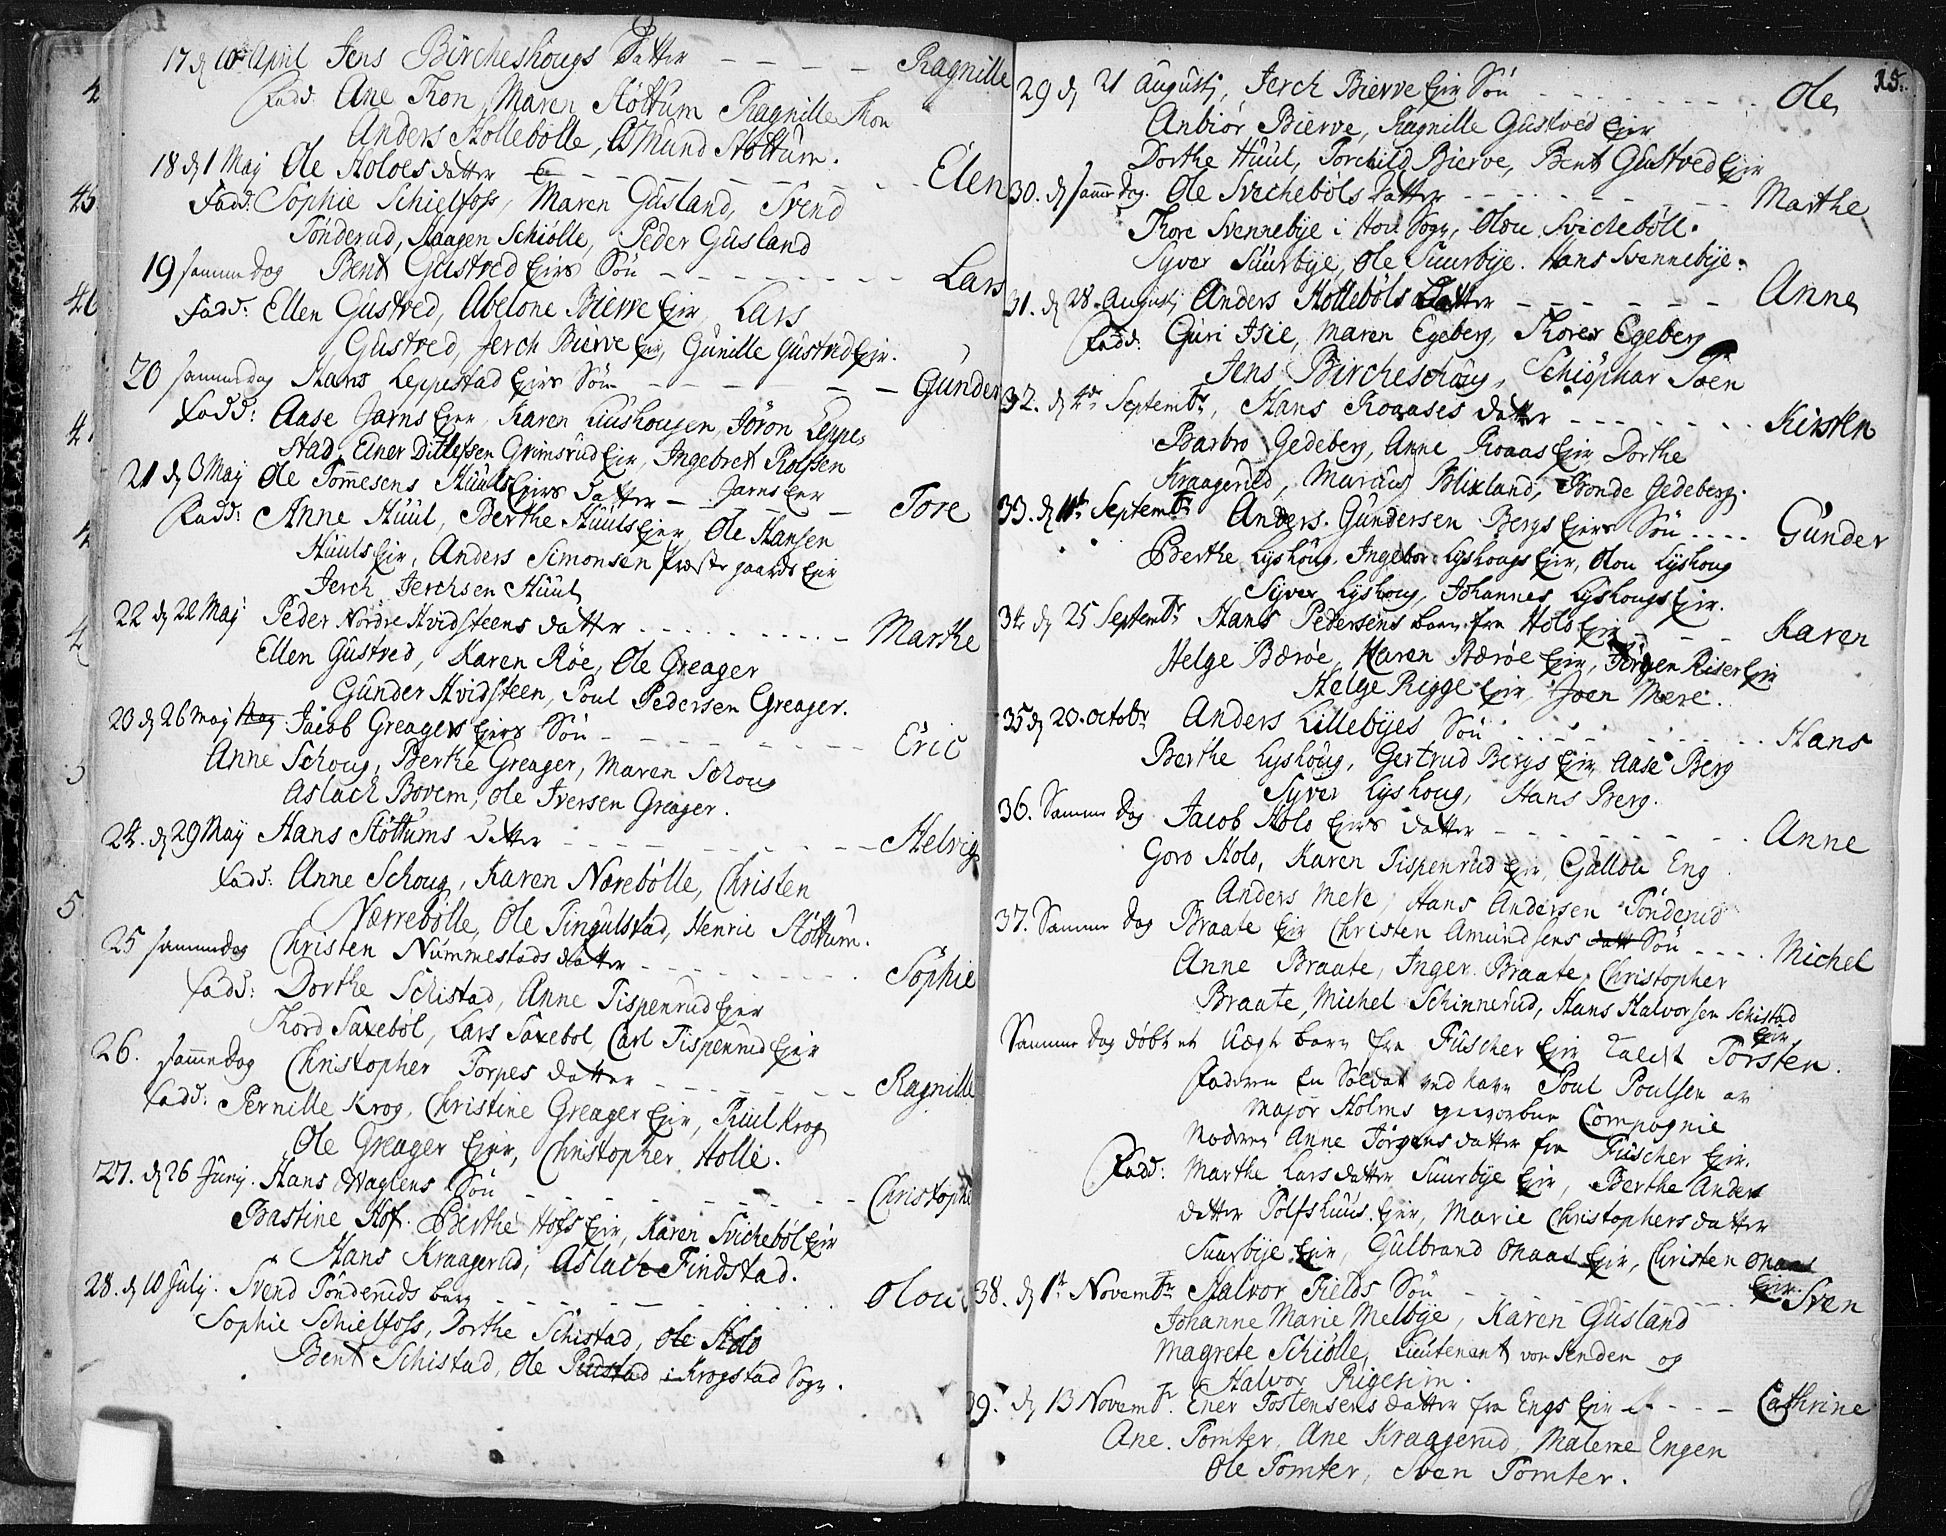 17 d 10de April Jens Bircheshougs Datter - - - - Ragnille
Fadd: Ane Thon, Maren Støttum Ragnille Thon
Anders Hollebølle, Asmund Støttum.
18 d 1 Maÿ Ole Holoes datter - - - - - - - Elen
Fadd: Sophie Schielfoss, Maren Gusland, Svend
Tønderud, Haagen Schiølle, Peder Gusland
19 samme Dag Bent Gustved Eiers Søn - - - - - - - Lars
Fadd: Ellen Gustved, Abelone Bierve Eir, Lars
Gustved, Jerch Bierve Eir, Gunille Gustved Eir.
20 samme dag Hans Leppestad Eiers Søn - - - - - - Gunder
Fadd: Aase Jarns Eier, Karen Liushougen, Jøron Leppe,
stad, Einer Ditlefsen Grimsrud Eir, Ingebret Rolfsen
Jarns Eier
21 d 3 Maÿ Ole Tommesens Huuls Eiers Datter - - - Tore
Fadd: Anne Huul, Berthe Huuls Eier, Ole Hansen
Huuls Eir, Anders Simonsen Præste gaards Eir
Jerch Jerchsen Huul
22 d 22 Maÿ Peder Nordre Hvidsteens datter . . . . . . . - Marthe
Ellen Gustved, Karen Røe, Ole Greager
Gunder Hvidsteen, Poul Pedersen Greager.
23 d 26 Maÿ Jacob Greagers Eiers Søn - - - - - - - Eric
Anne Schoug, Berthe Greager, Maren Schoug
Aslach Bovem, Ole Iversen Greager.
24. d 29 Maÿ Hans Støttums Datter - - - - - - - Helvig
Fadd: Anne Schoug, Karen Nærebølle, Christen
Nærrebølle, Ole Tingulstad, Henric Støttum.
25 samme dag Christen Nummestads datter - - - - - Sophie
Fadd: Dorthe Schistad, Anne Tispenrud Eier
Thord Saxebøl, Lars Saxebøl, Carl Tispenrud Eier
26. samme Dag Christopher Torpes datter - - - - - - Ragnille
Fadd: Pernille Krog, Christine Greager Eir, Paul Krog
Ole Greager Eier, Christopher Holle.
27. d 26 Junÿ. Hans Waglens Søn - - - - - - - Christophe
Bastine Hof. Berthe Hofs Eir, Karen Svichebøl Eir
Hans Kraagerud, Aslach Findstad.
28. d 10 Julÿ. Svend Tønderuds barn - - - - - - . . . Olou
Sophie Schielfoss, Dorthe Schistad, Ole Holo
Bent Schistad, Ole Rustad i Krogstad Sogn.
15.
29 d 21 Augustj, Jerch Bierve Eir Søn - - - - - - - Ole
Anbiør Bierve, Ragnille Gustved Eier
Dorthe Huul, Torchild Bierve, Bent Gustved Eir
30. d samme Dag. Ole Svichebøls Datter - - - - - - Marthe
Thore Svennebÿe i Houe Sogn, Olou Svichebøll.
Syver Suurbÿe, Ole Suurbÿe. Hans Svennebÿe.
31. d 28. Augustj Anders Hollebøls Datter - - - - - - Anne
Fadd: Guri Isie, Maren Egeberg, Thorer Egeberg
Jens Bircheschoug, Schiøphar Toen
32. d 4de Septembr, Hans Roaases datter - - - - - - Kirsten
Barbro Gedeberg, Anne Roaas Eir, Dorthe
Kraagerud, Marcus Blixland, Bonde Gedeberg.
33. d 11te Septembr Anders Gundersen Bergs Eiers Søn . . . . Gunder
Berthe Lyshoug, Ingebor Lyshougs Eir, Olou Lyshoug
Syver Lyshoug, Johannes Lyshougs Eir.
34 d 25 Septembr Hans Pedersens barn fra Holo Eir - - - Karen
Helge Bærøe, Karen Bærøe Eir, Jørgen Riser Eir
Helge Rigge Eir, Joen Mere.
35 d 23. Octobr Anders Lillebÿes Søn . . . . . . . Hans
Berthe Lyshoug, Gertrud Bergs Eir, Aase Berg
Syver Lyshoug, Hans Berg.
36. Samme Dag Jacob Holo Eiers datter - - - - - - - Anne
Goro Holo, Karen Tispenrud Eir, Gullou Eng
Anders Mele, Hans Andersen Tønderud
37. Samme Dag Braate Eir Christen Amundsens datt Søn - - - Michel
Anne Braate, Inger Braate, Christopher
Braate, Michel Schinnerud, Hans Halvorsen Schistad
Eir
Samme Dag døbt et Uægte barn fra Fuscher Eir Kaldt Torsten.
Faderen En Soldat ved Navn Poul Poulsen av
Major Holms gevorbne Compagnie
Moderen Anne Jørgensdatter fra Fuscher Eir.
Fadd: Marthe Larsdatter Suurbÿe Eir, Berthe Anders
datter Tolfshuus Eir, Marie Christophersdatter
Suurbÿe Eir, Gulbrand Onaas Eir, Christen Onaas
Eir
38. d 1te Novembr Halvor Fields Søn - - - - - - - Sven
Johanne Marie Melbÿe, Karen Gusland
Magrete Schiølle, Lieutenant von Senden og
Halvor Rigesim.
39. d 13 Novembr. Ener Tostensens datter fra Engs Eir - - - Cathrine
Ane Tomter, Ane Kraagerud, Malene Engen
Ole Tomter, Sven Tomter.